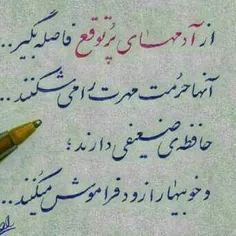 از آدمهای پرتوقع فاصله بگیر..
آنها حرمت مهرت را می شکنند..
حافظه ی ضعیفی دارند؛
و خوبیها را زود فراموش میکنند..